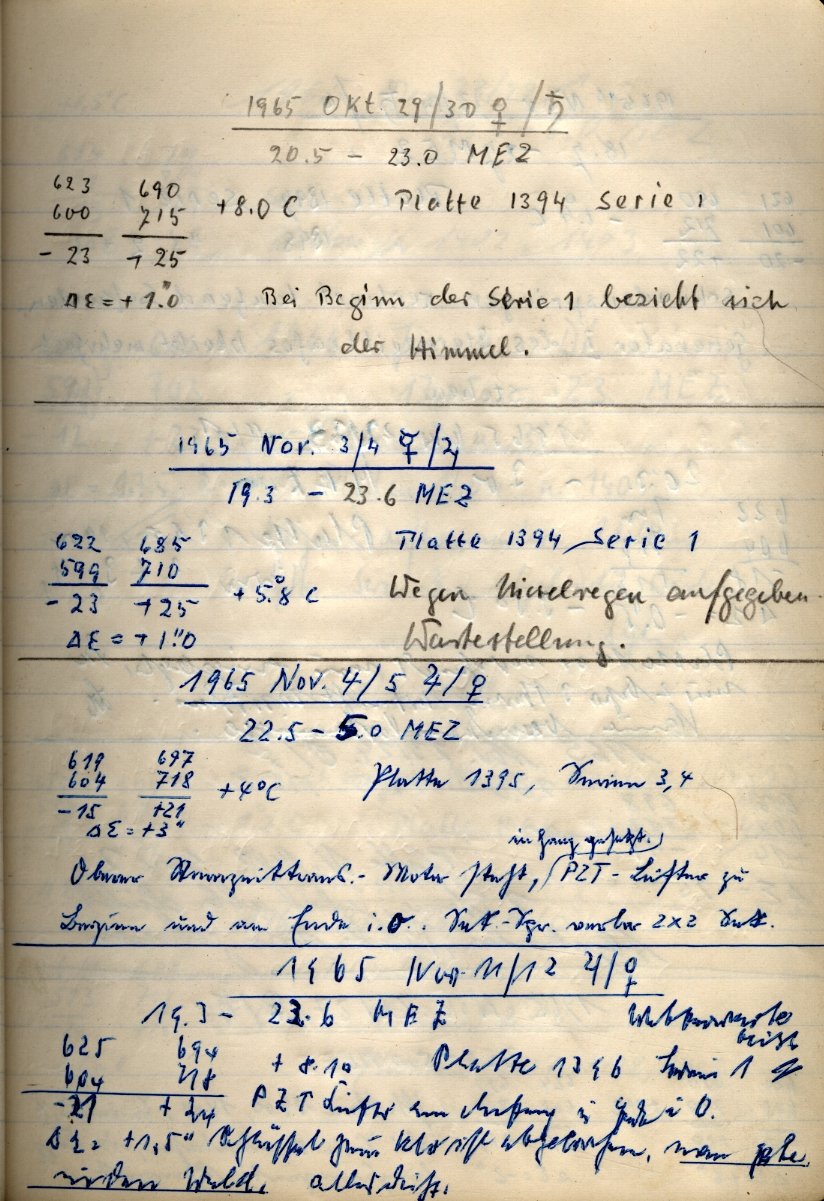 1965 Okt. 29/30 ♀/♄
20.5 – 23.0 MEZ
623 690
600 715 +8.0 C Platte 1394 Serie 1
- 23 + 25
Δε = + 1."0 Bei Beginn der Serie 1 bezieht sich
der Himmel.
1965 Nov. 3/4 ☿/♃
19.3 – 23.6 MEZ
622 685 Platte 1394 Serie 1
599 710 + 5.°8 C Wegen Nieselregen aufgegeben.
- 23 + 25
Δε = + 1."0 Wartestellung.
1965 Nov. 4/5 ♃/♀
22.5 – 5.0 MEZ
619 697
604 718 +4°C Platte 1395, Serien 3,4
-15 +21
Δε = +3"
in Gang gesetzt.
Oberer - Motor steht, PZT - Lüfter zu
Beginn und am Ende i.O.. Sek.-Spr. vorbar 2x2 Sek.
1965 Nov 11/12 ♃/♀
19.3 – 23.6 MEZ
625 694 + 8.10 Platte 1396 Serie 1
604 718
-21 + 24 PZT Lüfter am Anfang i O.
Δε = +1,5" Schlüssel zum Klo ist abgebrochen, man gehe
in den Wald.